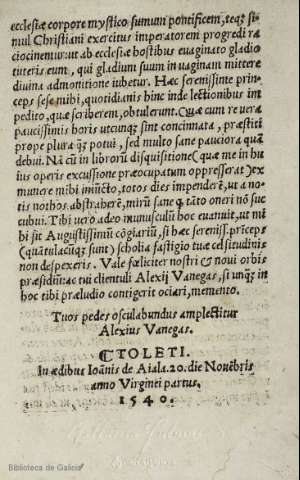 ecclesiæ corpore mystico summum pontificem, teqz si-
mul Christiani exercitus imperatorem progredi ra
ciocinemur: ut ab ecclesiæ hostibus euaginato gladio
tuteris eum, qui gladium suum in uaginam mittere
diuina admonitione iubetur. Hæc serenissime prin-
ceps sese mihi, quotidianis hinc inde lectionibus im
pedito, quæ scriberem, obtulerunt. Quæ cum re uera
paucissimis horis utcunqz sint concinnata, præstiti
prope plura qz potui, sed multo sane pauciora quā
debui. Nā cū in librorū disquisitione (quæ me in hu
ius operis excussione præocupatum oppresserat) ex
munere mihi iniūcto, totos dies impenderē, ut a no-
tis nothos abstraherē, mirū sane q tāto oneri nō suc
cubui. Tibi uero adeo munusculū hoc euanuit, ut mi
hi sit Augustissimū cōgiariū, si hæc sereniss. prīceps
(quātulacūqz sunt) scholia fastigio tuæ celsitudinis
non despexeris. Vale fœliciter nostri & noui orbis
præsidiū: ac tui clientuli Alexij Vanegas, si unqz in
hoc tibi præludio contigerit ociari, memento.
Tuos pedes osculabundus amplectitur
Alexius Vanegas.
☾TOLETI.
In ædibus Ioānis de Aiala. 20. die Nouēbris
anno Virginei partus.
1540.
Biblioteca de Galicia